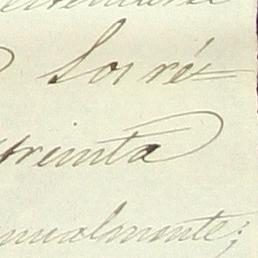 Los ré=
treinta
nualmente;